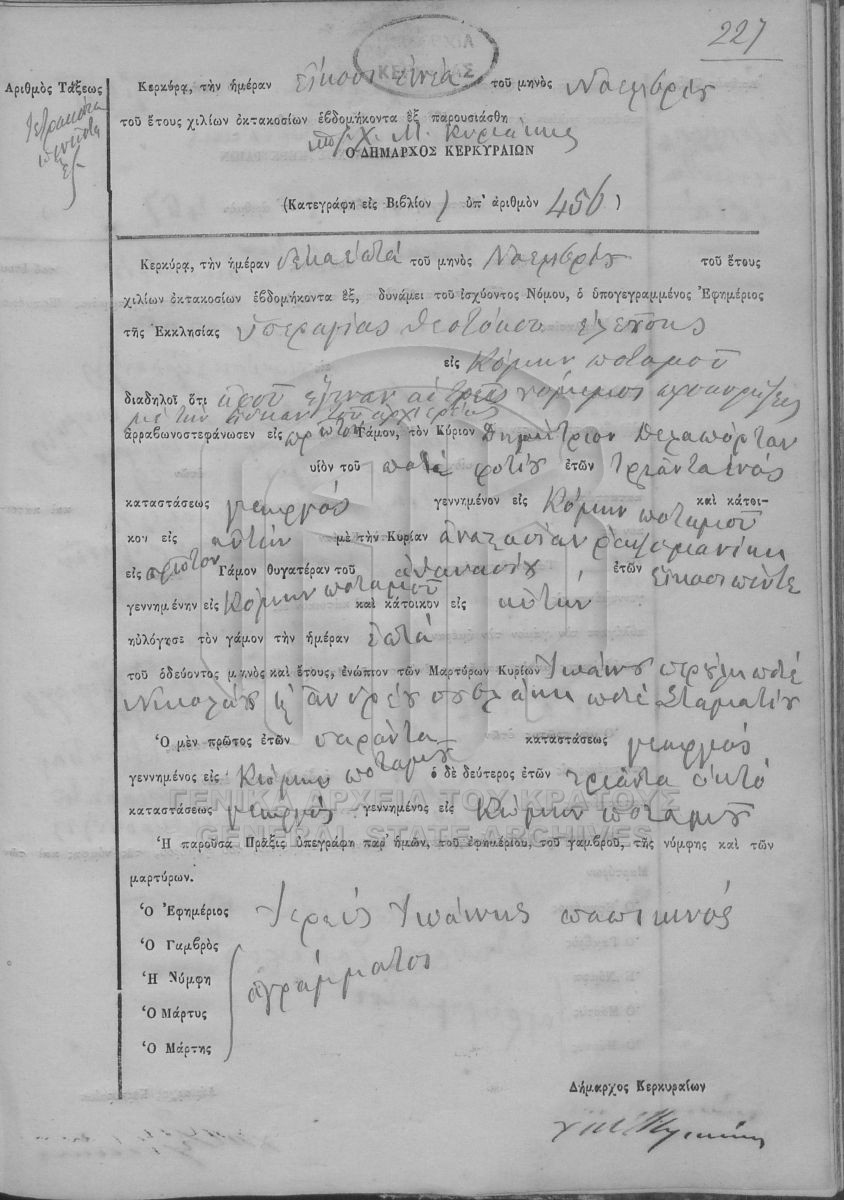 227
ΚΕΡΚΥΡΑΣ
Ἀριθμὸς Τάξεως
τετρακόσια
πενῆντα
ἕξ
Κερκύρᾳ, τὴν ἡμέραν εἴκοσι ἐνέα τοῦ μηνὸς Νοεμβρίου
τοῦ ἔτους χιλίων ὀκτακοσίων ἑβδομήκοντα ἓξ παρουσιάσθη
Ο ΔΗΜΑΡΧΟΣ ΚΕΡΚΥΡΑΙΩΝ
(Κατεγράφη εἰς Βιβλίον ὑπ' ἀριθμὸν 456)
Κερκύρᾳ, τὴν ἡμέραν δεκαεπτά τοῦ μηνὸς Νοεμβρίου τοῦ ἔτους
χιλίων ὀκτακοσίων ἑβδομήκοντα ἕξ, δυνάμει τοῦ ἰσχύοντος Νόμου, ὁ ὑπογεγραμμένος Ἐφημέριος
τῆς Ἐκκλησίας ὑπεραγίας Θεοτόκου
εἰς Κόμην ποταμοῦ
διαδηλοῖ ὅτι ἀφοῦ ἔγιναν αἱ τρεῖς νόμιμοι
με τὴν ἄδειαν τοῦ ἀρχιερέως
ἀρραβωνοστεφάνωσεν εἰς πρῶτον Γάμον, τὸν Κύριον Δημήτριον Δελαπόρταν
υἱὸν τοῦ ποτὲ φοτίου ἐτῶν τριάντα ἑνός
καταστάσεως γεοργός γεννημένον εἰς Κόμην ποταμοῦ καὶ κάτοι-
κον εἰς αὐτήν μὲ τὴν Κυρίαν ἀναστασίαν
εἰς πρῶτον Γάμον θυγατέραν τοῦ ἀθανασίου ἐτῶν εἴκοσι πέντε
γεννημένην εἰς Κόμην ποταμοῦ καὶ κάτοικον εἰς αὐτήν
ηὐλόγησε τὸν γάμον τὴν ἡμέραν ἑπτά
τοῦ ὁδεύοντος μηνὸς καὶ ἔτους, ἐνώπιον τῶν Μαρτύρων Κυρίων Ἰωάνου ποτέ
Νικολάου ἀνδρέου ποτέ Σταματίου
Ὁ μὲν πρῶτος ἐτῶν σαράντα καταστάσεως γεοργός
γεννημένος εἰς Κόμην ποταμοῦ ὁ δὲ δεύτερος ἐτῶν τριάντα ὀκτό
καταστάσεως γεοργός γεννημένος εἰς Κόμην ποταμοῦ
ΓΕΝΙΚΑ ΑΡΧΕΙΑ ΤΟΥ ΚΡΑΤΟΥΣ
GENERAL STATE ARCHIVES
Ἡ παροῦσα Πρᾶξις ὑπεγράφη παρ' ἡμῶν, τοῦ ἐφημερίου, τοῦ γαμβροῦ, τῆς νύμφης καὶ τῶν
μαρτύρων.
Ὁ Ἐφημέριος Ἱερεύς Ἰωάννης
Ὁ Γαμβρὸς
Ἡ Νύμφη ἀγράμματοι
Ὁ Μάρτυς
Ὁ Μάρτης
Δήμαρχος Κερκυραίων